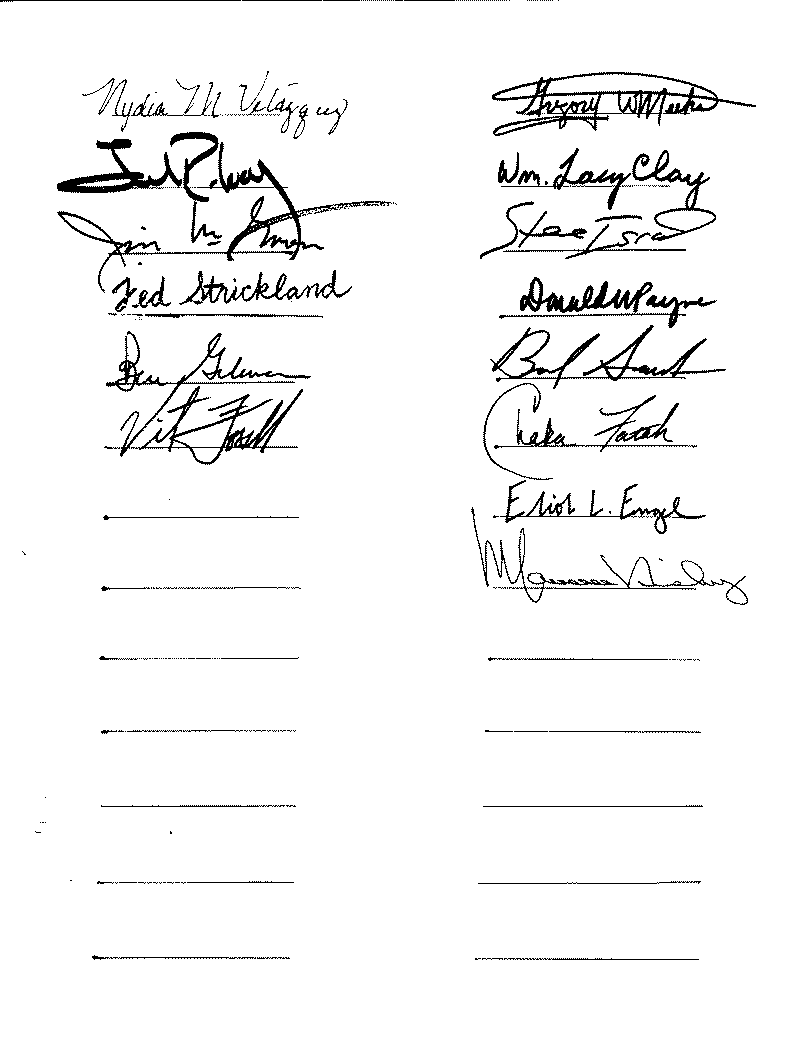 Nydia M Velázquez
Gregory W Meeks
Wm. Lacy Clay
Jim McGovern
Steve Israel
Ted Strickland
Donald M Payne
Ben Gilman
Vito Fossella
Chaka Fattah
Eliot L. Engel
Maurice Hinchey